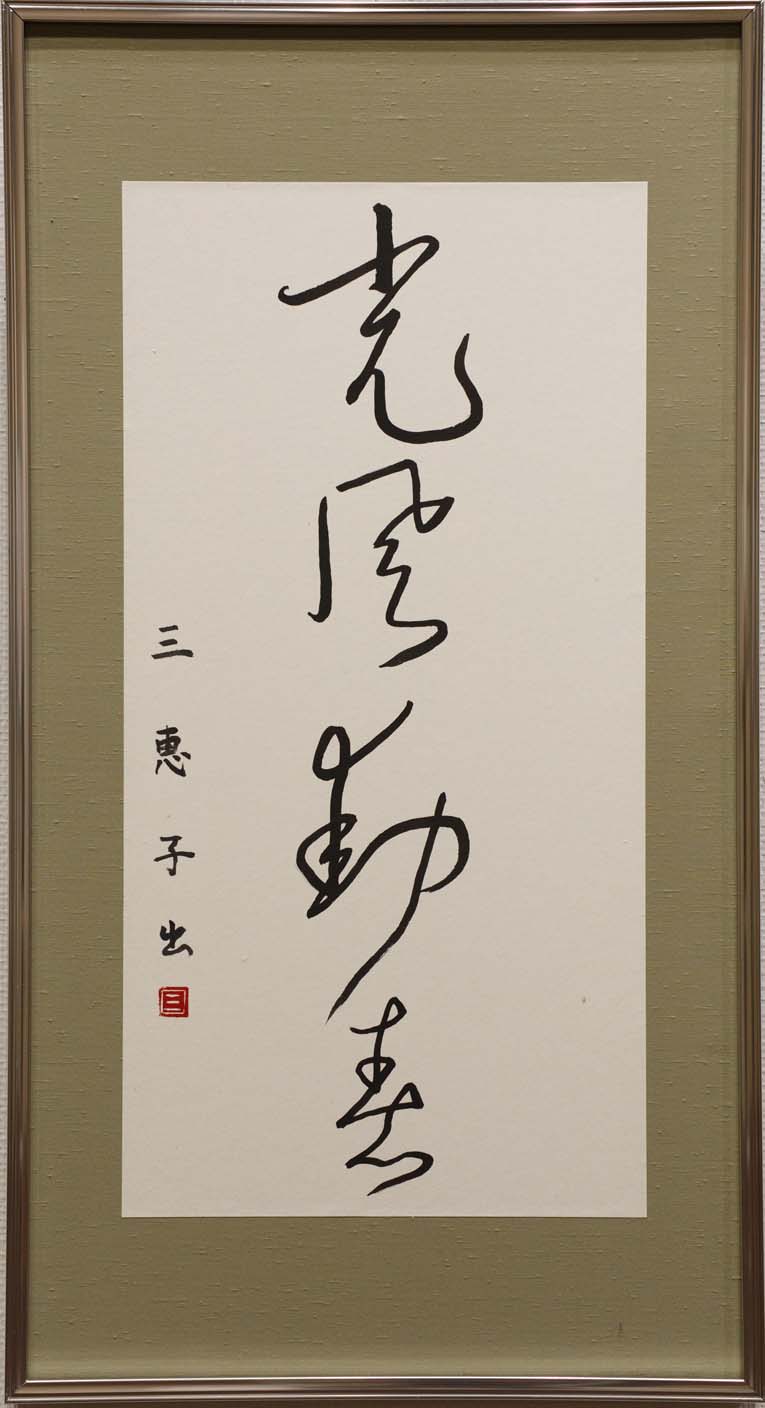 光風動春
三恵子出
三